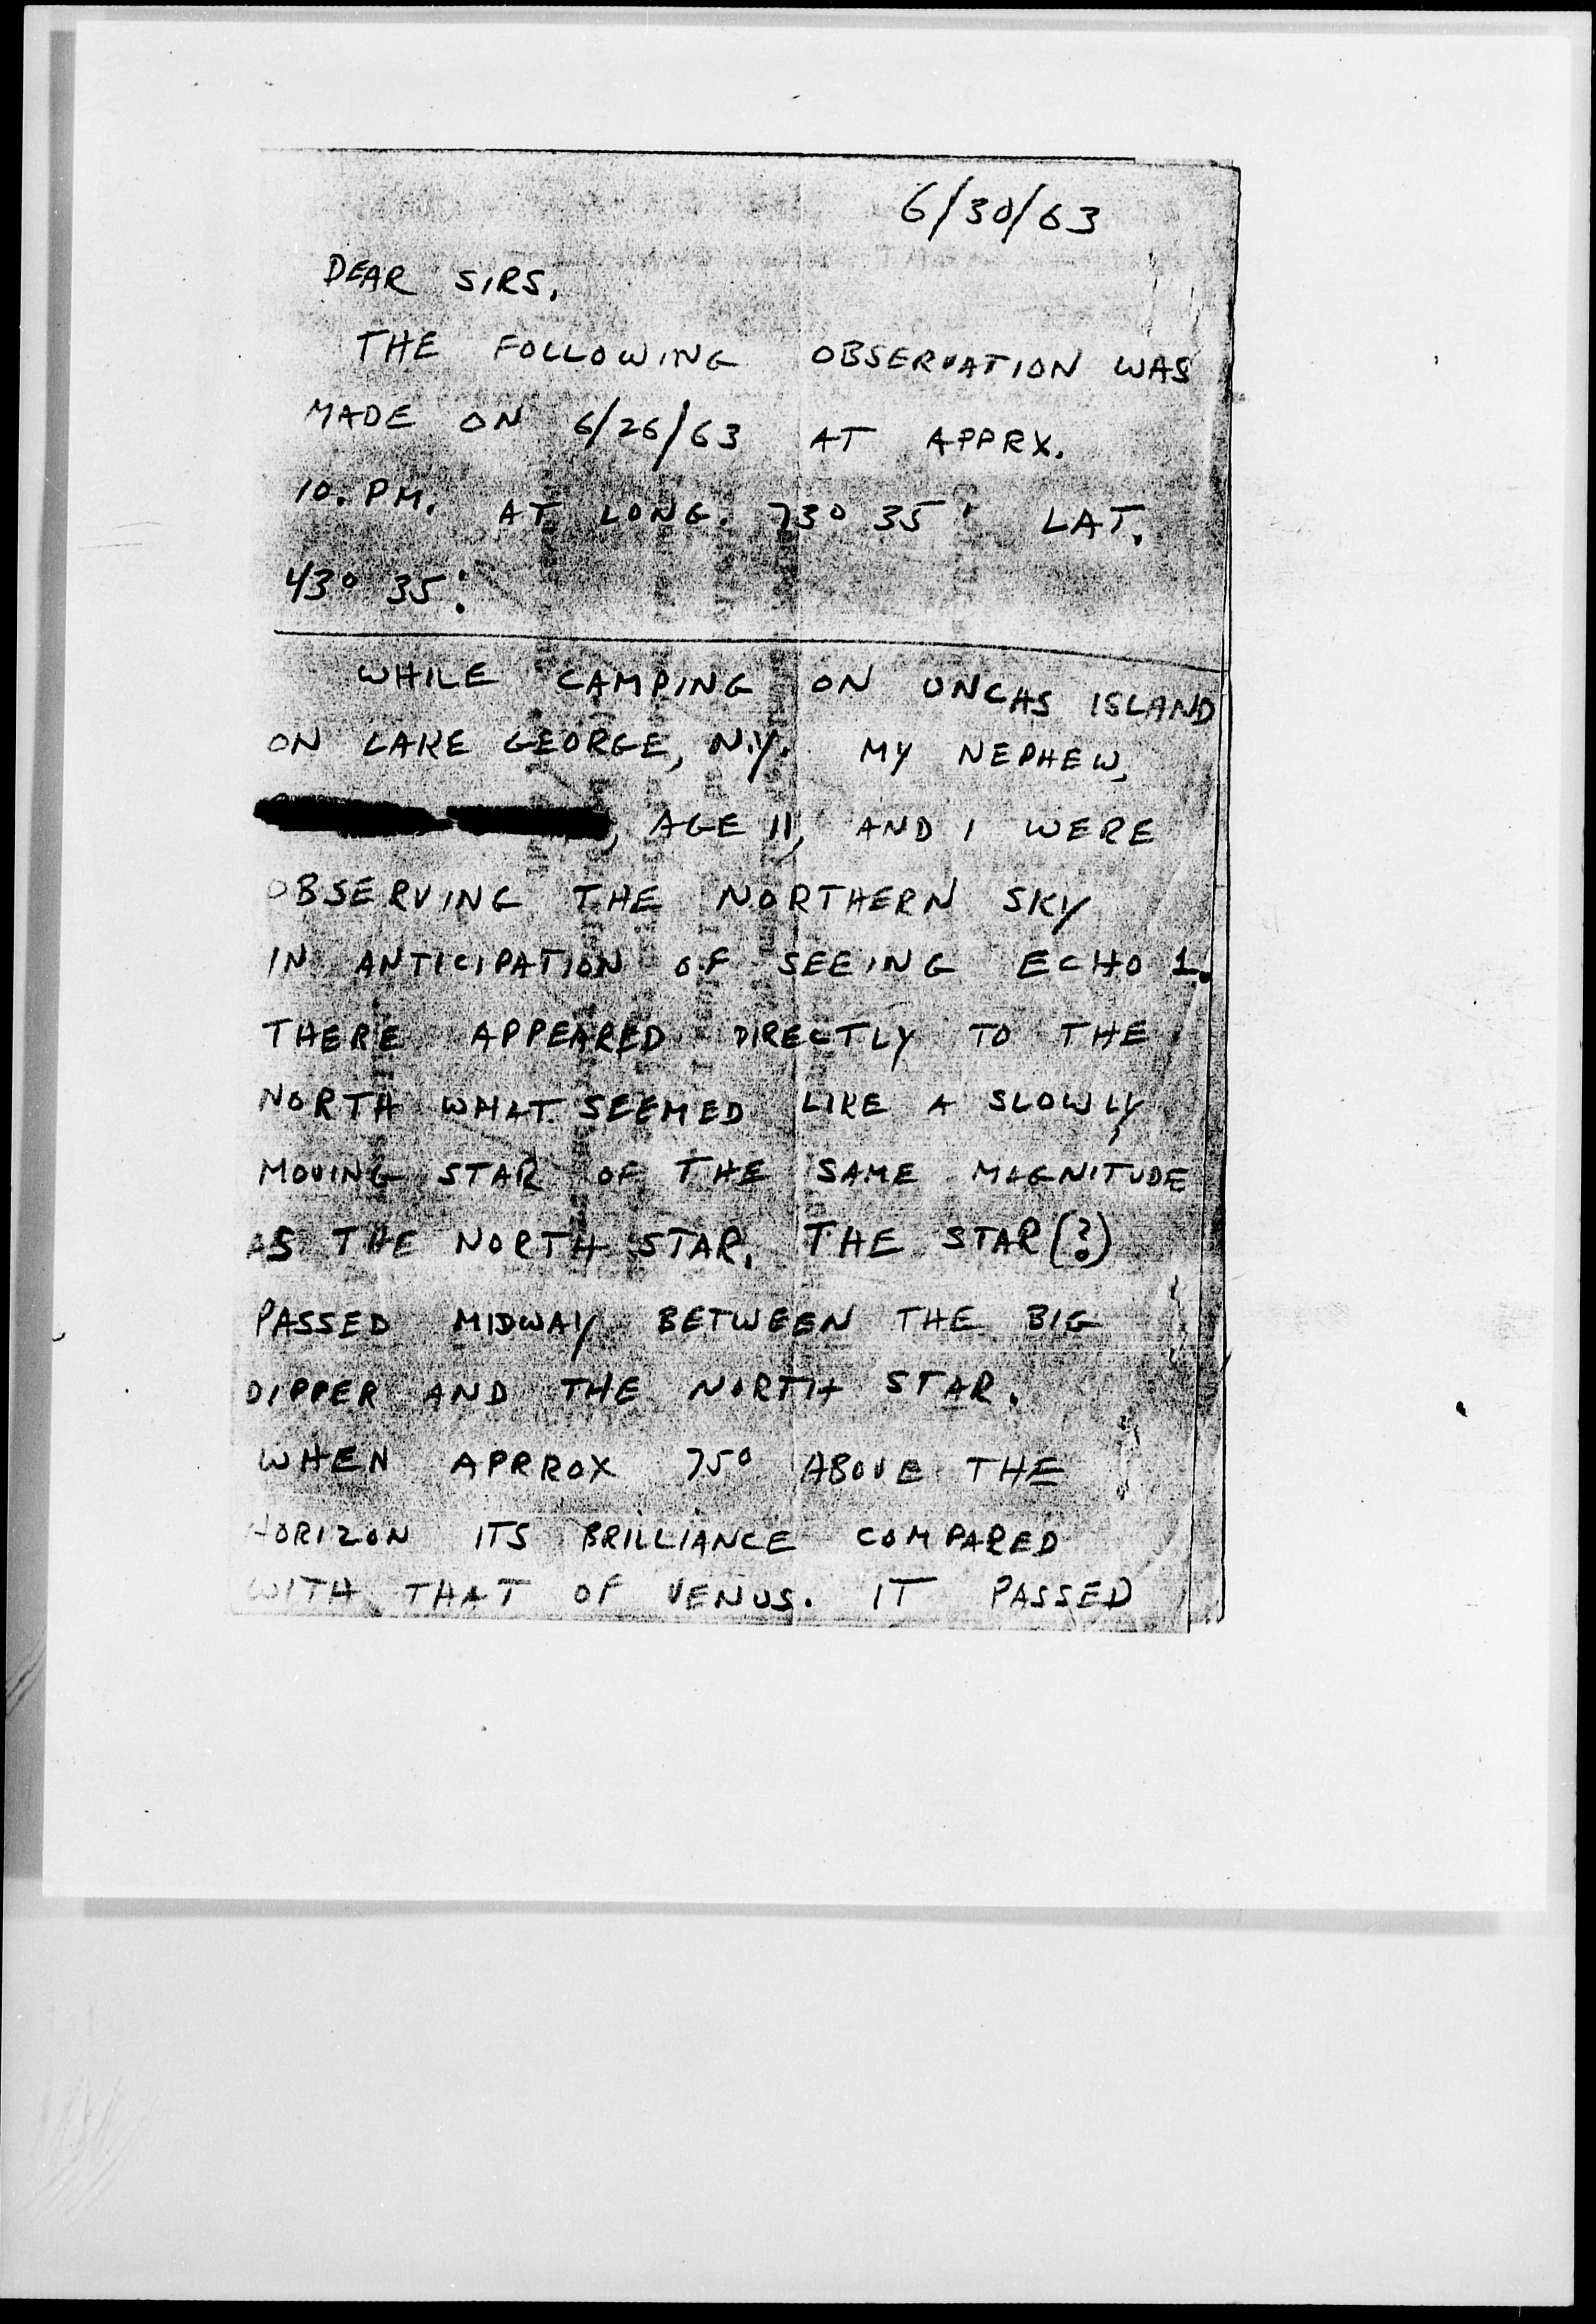 6/30/63
DEAR SIRS,
THE FOLLOWING OBSERVATION WAS
MADE ON 6/26/63 AT APPRX.
10. PM. AT LONG. 73° 35' LAT.
43° 35'.
WHILE CAMPING ON UNCAS ISLAND
ON LAKE GEORGE, N.Y. MY NEPHEW,
, AGE 11, AND I WERE
OBSERVING THE NORTHERN SKY
IN ANTICIPATION OF SEEING ECHO 1.
THERE APPEARED DIRECTLY TO THE
NORTH WHAT SEEMED LIKE A SLOWLY
MOVING STAR OF THE SAME MAGNITUDE
AS THE NORTH STAR. THE STAR (?)
PASSED MIDWAY BETWEEN THE BIG
DIPPER AND THE NORTH STAR.
WHEN APRROX 75° ABOVE THE
HORIZON ITS BRILLIANCE COMPARED
WITH THAT OF VENUS. IT PASSED